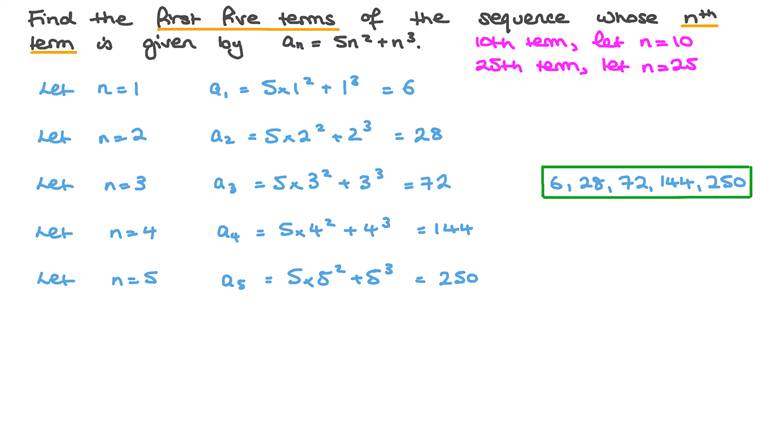 Find the first five terms of the sequence whose nth
term is given by aₙ = 5n² + n³.
10th term, let n = 10
25th term, let n = 25
Let n = 1 a₁ = 5×1² + 1³ = 6
Let n = 2 a₂ = 5×2² + 2³ = 28
Let n = 3 a₃ = 5×3² + 3³ = 72
6, 28, 72, 144, 250
Let n = 4 a₄ = 5×4² + 4³ = 144
Let n = 5 a₅ = 5×5² + 5³ = 250